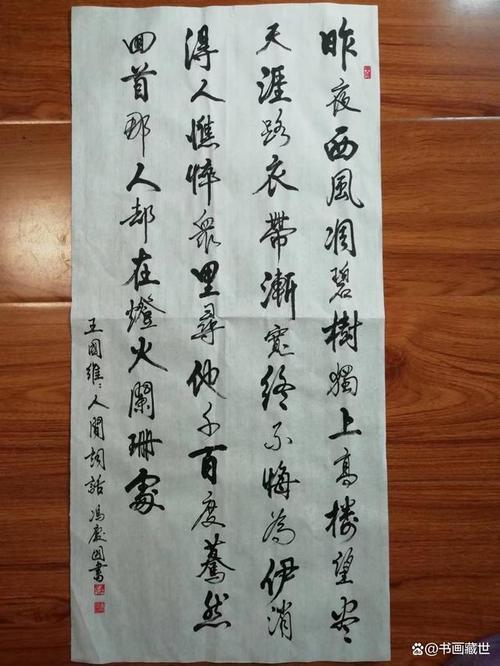 昨夜西風凋碧樹獨上高樓望盡
天涯路衣帶漸寬終不悔為伊消
得人憔悴衆里尋他千百度驀然
回首那人却在燈火闌珊處
王國維:人間詞話 馮慶國書
头条@书画藏世